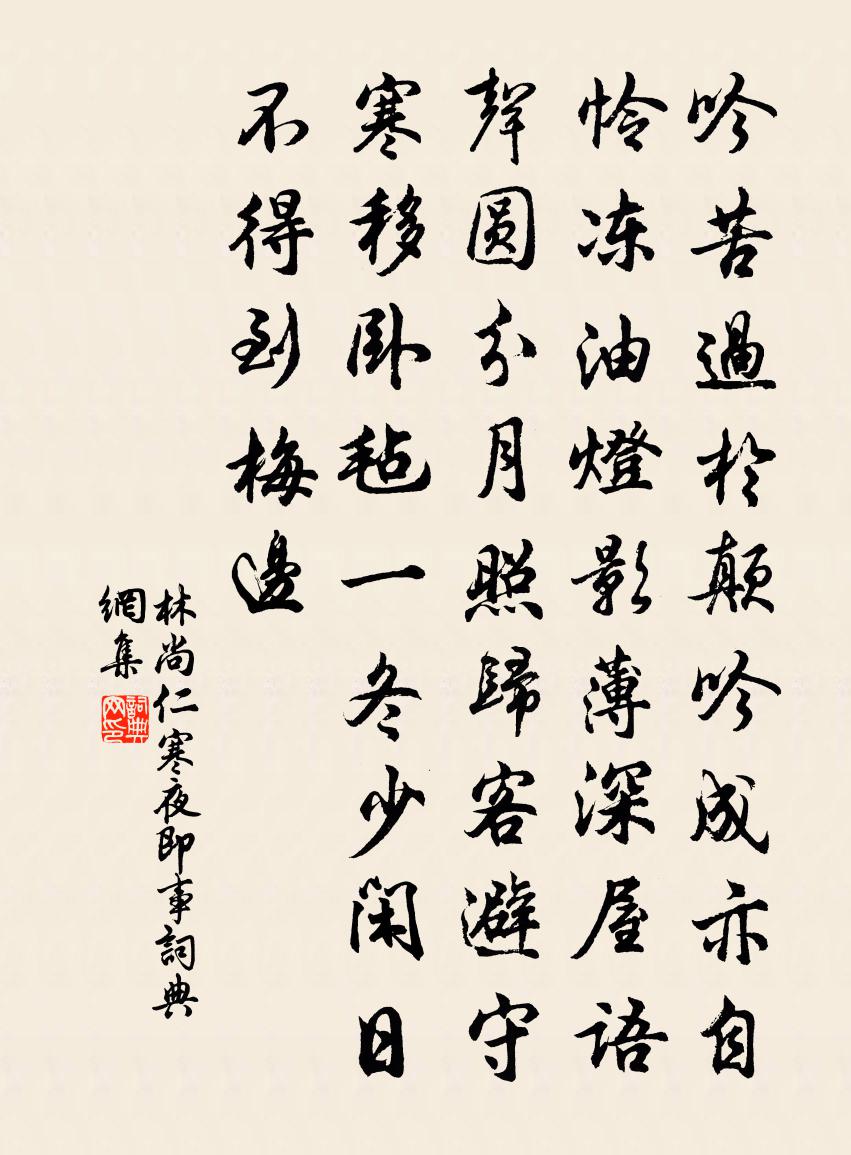 吟苦過於顛吟成亦自
怜冻油燈影薄深屋语
聲圓分月照歸客避守
寒移卧毡一冬少閑日
不得到梅邊
林尚仁寒夜即事詞典
網集
詞典
网印